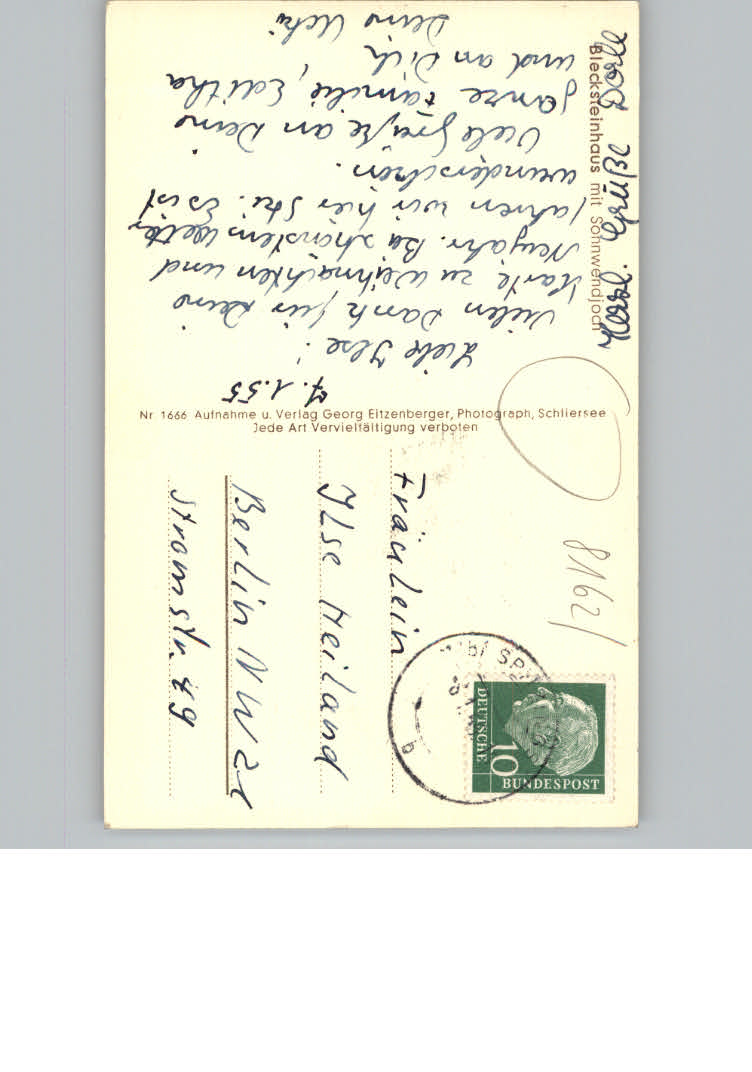 Blecksteinhaus mit Sonnwendjoch
7.1.55
Liebe Ilse!
Vielen Dank für Deine
Karte zu Weihnachten und
Neujahr. Bei schönstem Wetter
fahren wir hier Ski. Es ist
wunderschön.
Viele Grüße an Deine
ganze Familie, Editha
und an Dich
Deine Uschi
Herzl. Grüße
Nr 1666 Aufnahme u. Verlag Georg Eitzenberger, Photograph, Schliersee
Jede Art Vervielfältigung verboten
Fräulein
Ilse Heiland
Berlin NW 21
Stromstr. 49
8162/
DEUTSCHE
BUNDESPOST
10
b